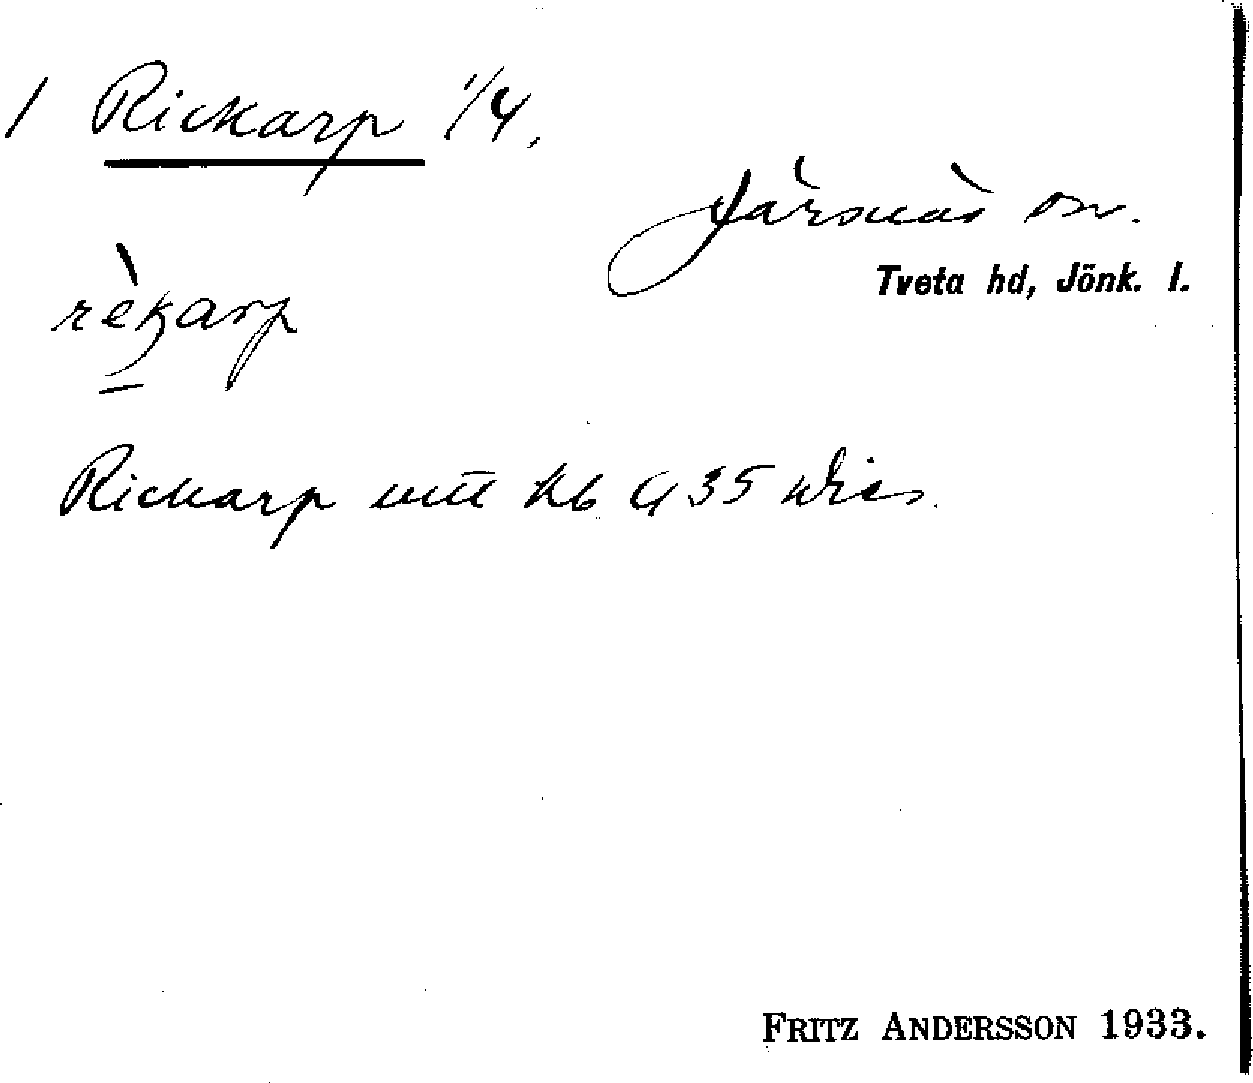 1 Rickarp 1/4.
Järsnäs sn.
Tveta hd, Jönk. l.
rèkarp
Rickarp mtl kb G 35
FRITZ ANDERSSON 1933.